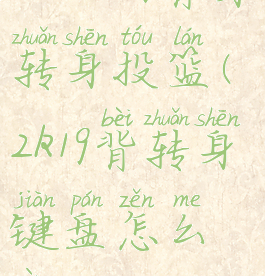 zhuǎn shēn tóu lán
转身投篮(
bèi zhuǎn shēn
2k19背转身
jiàn pán zěn me
键盘怎么